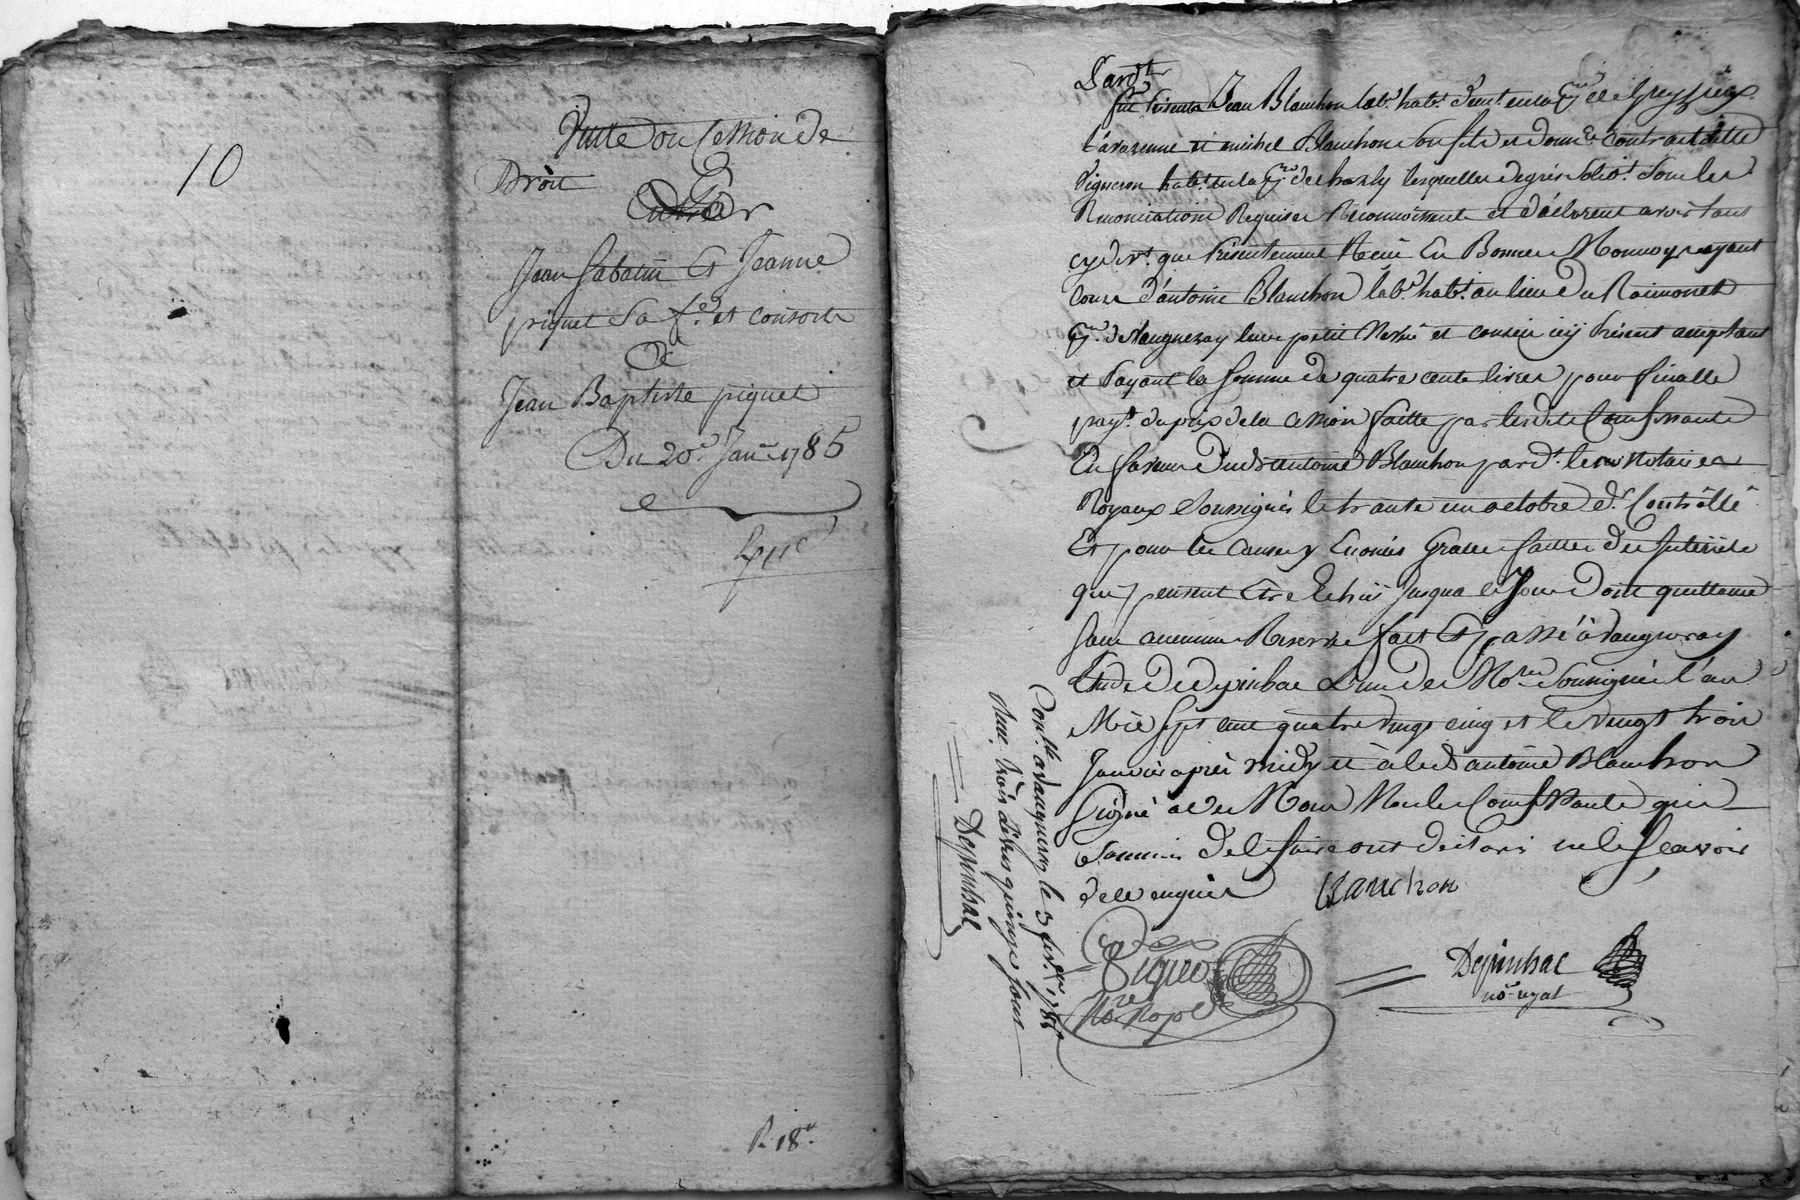 10
Vente ou Cession de
Droit
Entre
Jean Sabatin Et Jeanne
piguet Sa fe. et consorts
Et
Jean Baptiste piguet
Du 20e Janer 1785
R. 18s.
Pardt
fut présents Jean Blanchon labr. habt. en la
et michel Blanchon son fils et
Vigneron habt. en la lesquelles de gré solidt. sous les
Renonciations Requises Reconnoissent et déclarent avoir tant
cydevt. que Présentement Receu En Bonnes Monnoyes ayant
Cours d'antoine Blanchon labr. habt. au lieu du Raimonet
de Vaugneray leur petit Neveu et cousin icy présent acceptant
et Payant la somme de quatre cents livres pour finalle
payt. du prix de la Cession faitte par lesdits Confessants
En faveur dudit antoine Blanchon pardt. les Notaires
Royaux Soussignés le trente un octobre dr. Contrôllé
Et pour les Causes y Enoncés Grace faitte des Interets
qui peuvent être Echus Jusqua ce Jour Dont quittance
sans aucunne Reserve fait Et passé à Vaugneray
Etude de depinhac L'un des Nores Soussignés l'an
Mil sept cent quatre vingt cinq et le vingt trois
Janvier après midy et à ledt antoine Blanchon
Signé avec Nous Non les Confessants qui
Sommés de le faire ont declaré ne le sçavoir
de ce enquis Blanchon
Piguet
Nore Royal
Depinhac
nore royal
Contllé a Vaugneray le 3 fevrer 1785
Reçu trois livres quinze sous
Depinhac